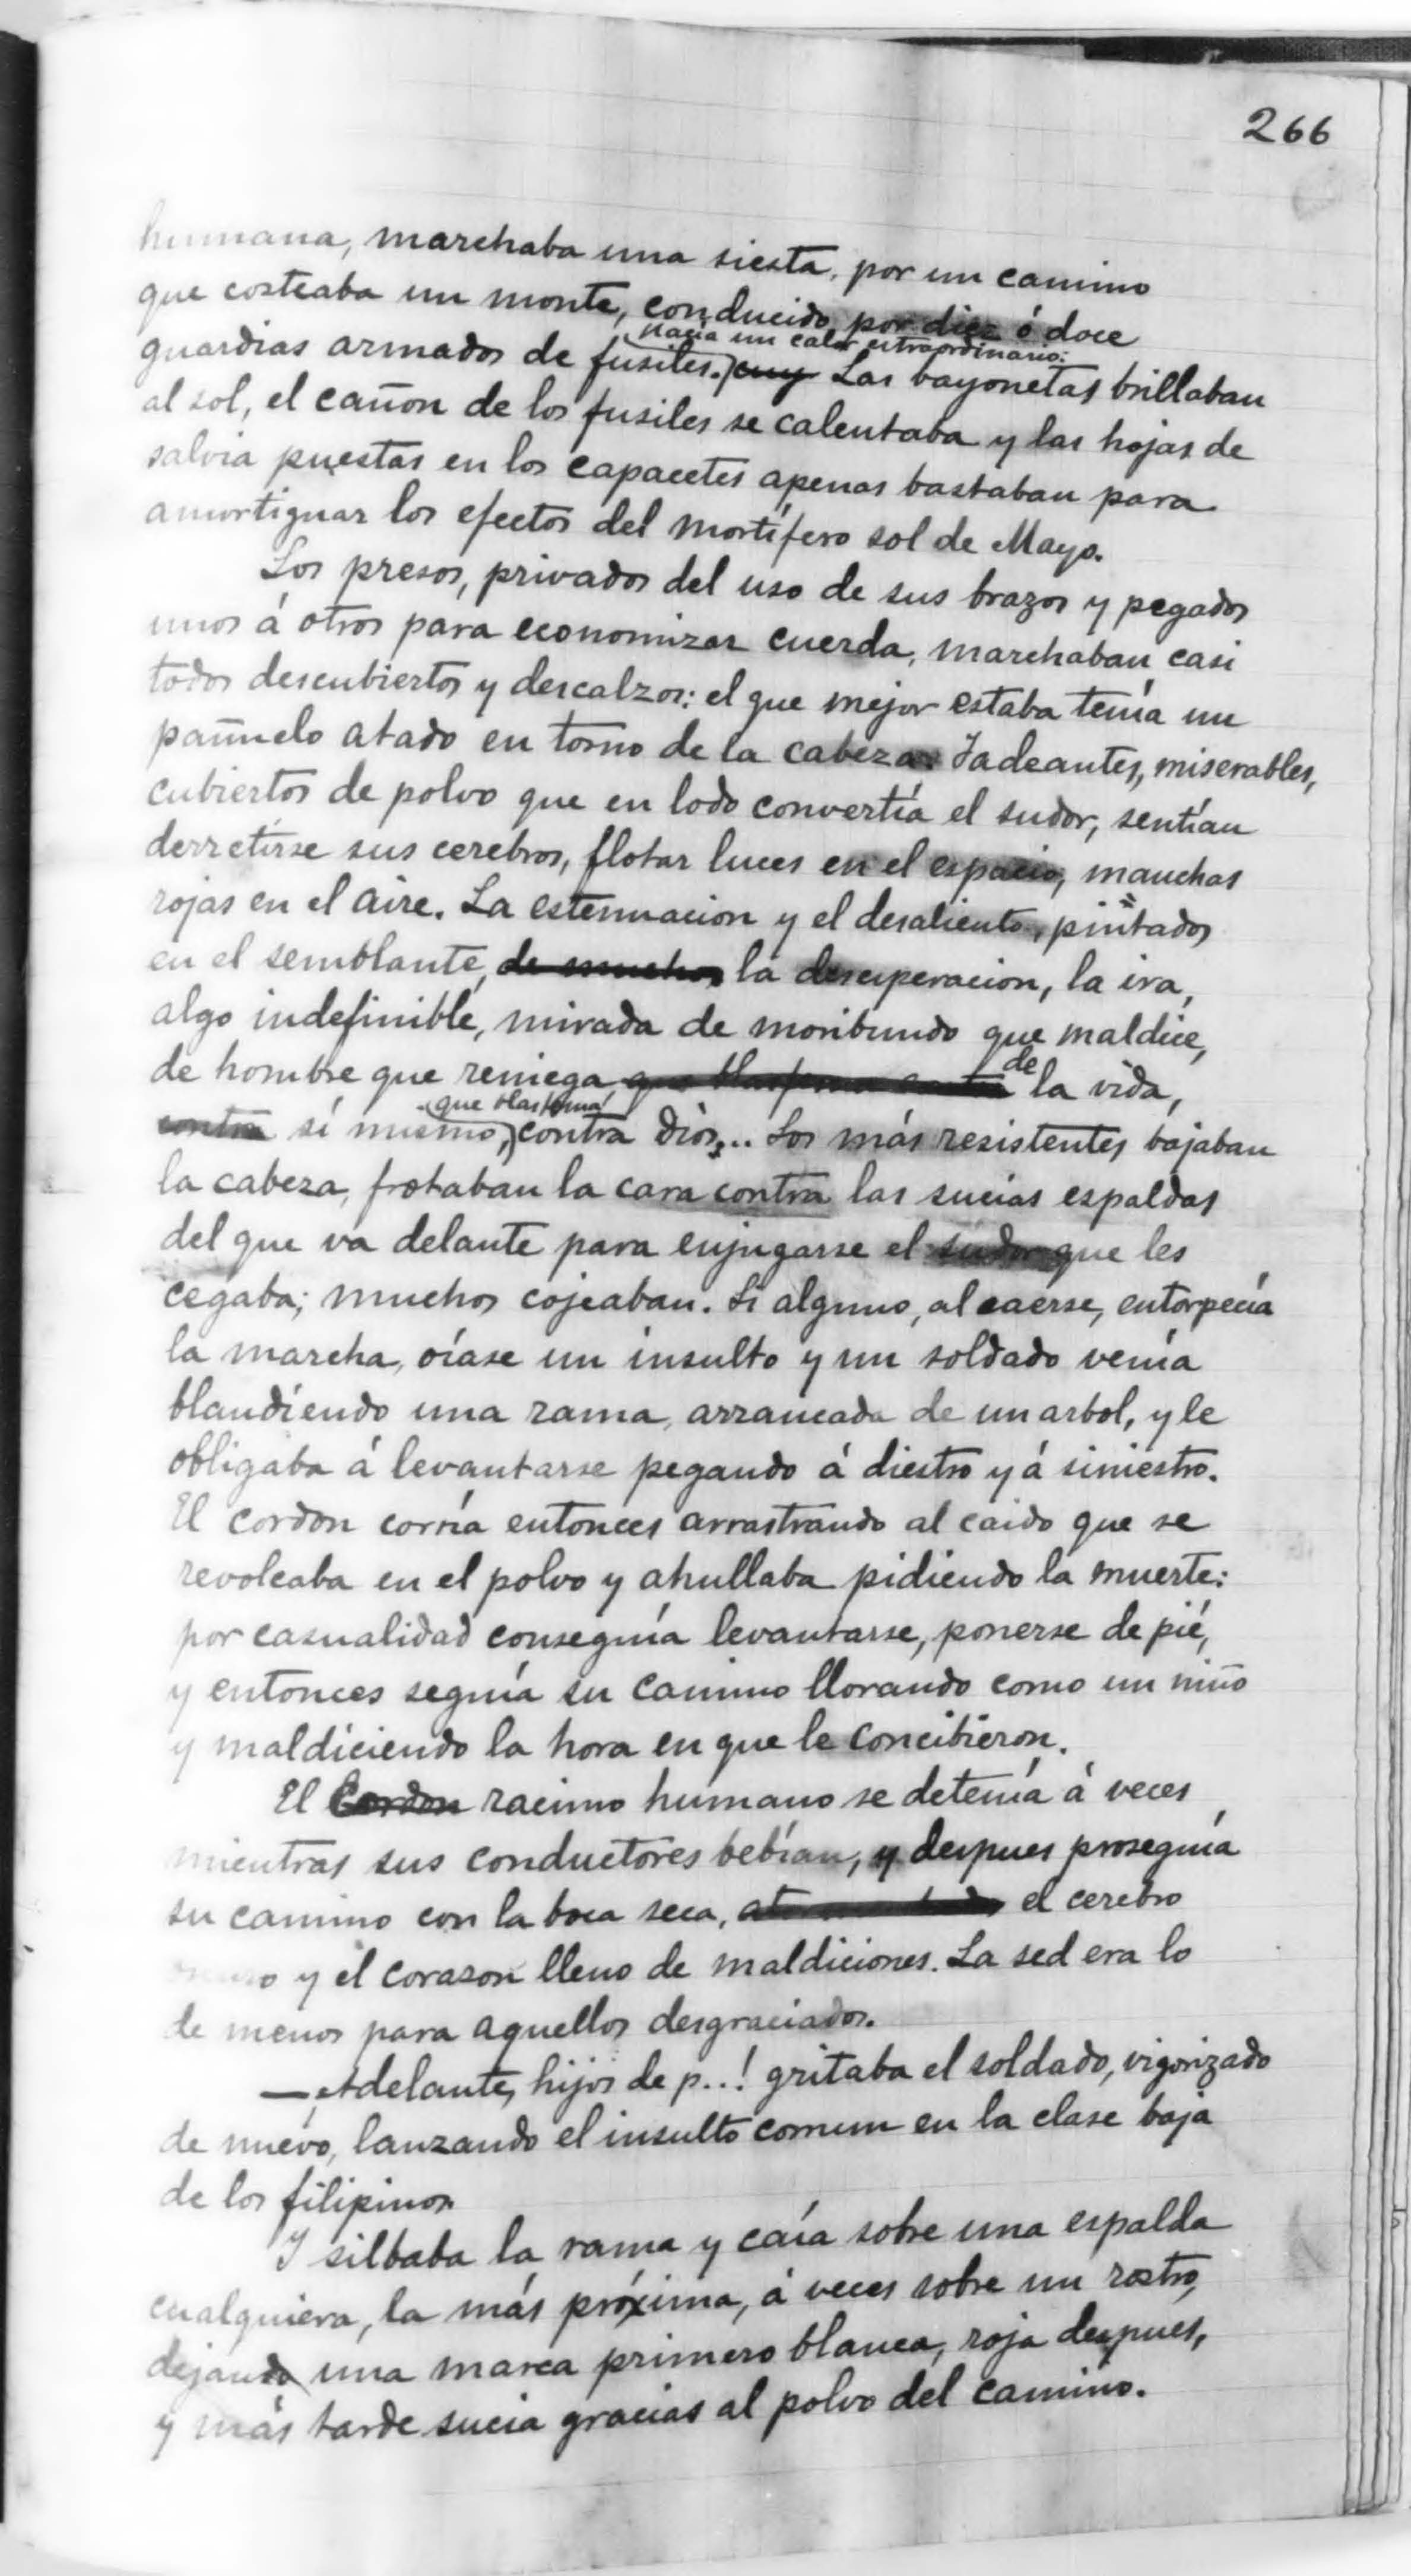 266
humana, marchaba una siesta, por un camino
que costeaba un monte, conducido por diez ó doce
hacía un calor extraordinario:
guardias armados de fusiles. cuy Las bayonetas brillaban
al sol, el cañon de los fusiles se calentaba y las hojas de
salvia puestas en los capacetes apenas bastaban para
amortiguar los efectos del mortífero sol de Mayo.
Los presos, privados del uso de sus brazos y pegados
unos á otros para economizar cuerda, marchaban casi
todos descubiertos y descalzos: el que mejor estaba tenía un
pañuelo atado en torno de la cabeza. Jadeantes, miserables,
cubiertos de polvo que en lodo convertía el sudor, sentían
derretirse sus cerebros, flotar luces en el espacio, manchas
rojas en el aire. La estenuacion y el desaliento, pintados
en el semblante, de muchos la desesperacion, la ira,
algo indefinible, mirada de moribundo que maldice,
de hombre que reniega que blasfema contra de la vida,
que blasfema
contra sí mismo, contra Dios... Los más resistentes bajaban
la cabeza, frotaban la cara contra las sucias espaldas
del que va delante para enjugarse el sudor que les
cegaba; muchos cojeaban. Si alguno, al caerse, entorpecía
la marcha, oíase un insulto y un soldado venía
blandiendo una rama, arrancada de un arbol, y le
obligaba á levantarse pegando á diestro y á siniestro.
El cordon corría entonces arrastrando al caido que se
revolcaba en el polvo y ahullaba pidiendo la muerte:
por casualidad conseguía levantarse, ponerse de pié,
y entonces seguía su camino llorando como un niño
y maldiciendo la hora en que le concibieron.
El Cordon racimo humano se detenía á veces
mientras sus conductores bebían, y despues proseguía
su camino con la boca seca, el cerebro
oscuro y el corazon lleno de maldiciones. La sed era lo
de menos para aquellos desgraciados.
—Adelante, hijos de p..! gritaba el soldado, vigorizado
de nuevo, lanzando el insulto comun en la clase baja
de los filipinos.
Y silbaba la rama y caía sobre una espalda
cualquiera, la más próxima, á veces sobre un rostro,
dejando una marca primero blanca, roja despues,
y más tarde sucia gracias al polvo del camino.